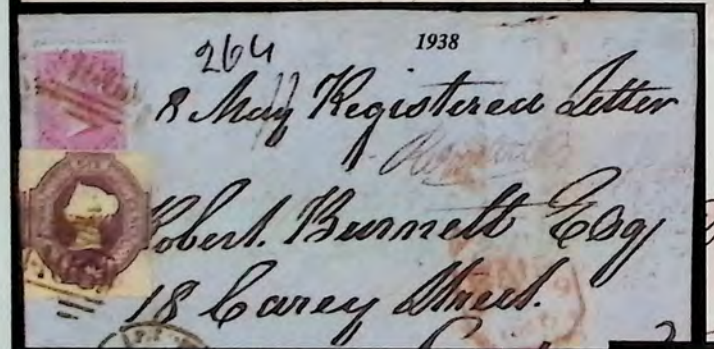 1938
264
8 May Registered Letter
Robert Burnett Esq
18 Carey Street.